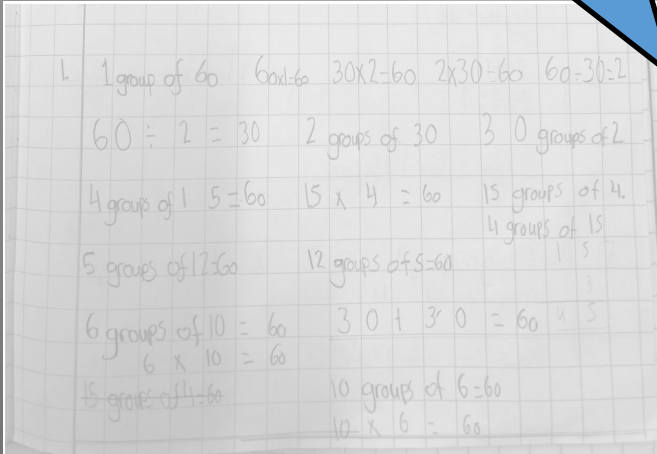 1. 1 group of 60 60x1=60 30x2=60 2x30=60 60÷30=2
60 ÷ 2 = 30 2 groups of 30 30 groups of 2
4 groups of 15=60 15 x 4 = 60 15 groups of 4.
4 groups of 15
5 groups of 12=60 12 groups of 5=60
6 groups of 10 = 60 30 + 30 = 60
6 x 10 = 60
15 groups of 4=60 10 groups of 6=60
10 x 6 = 60